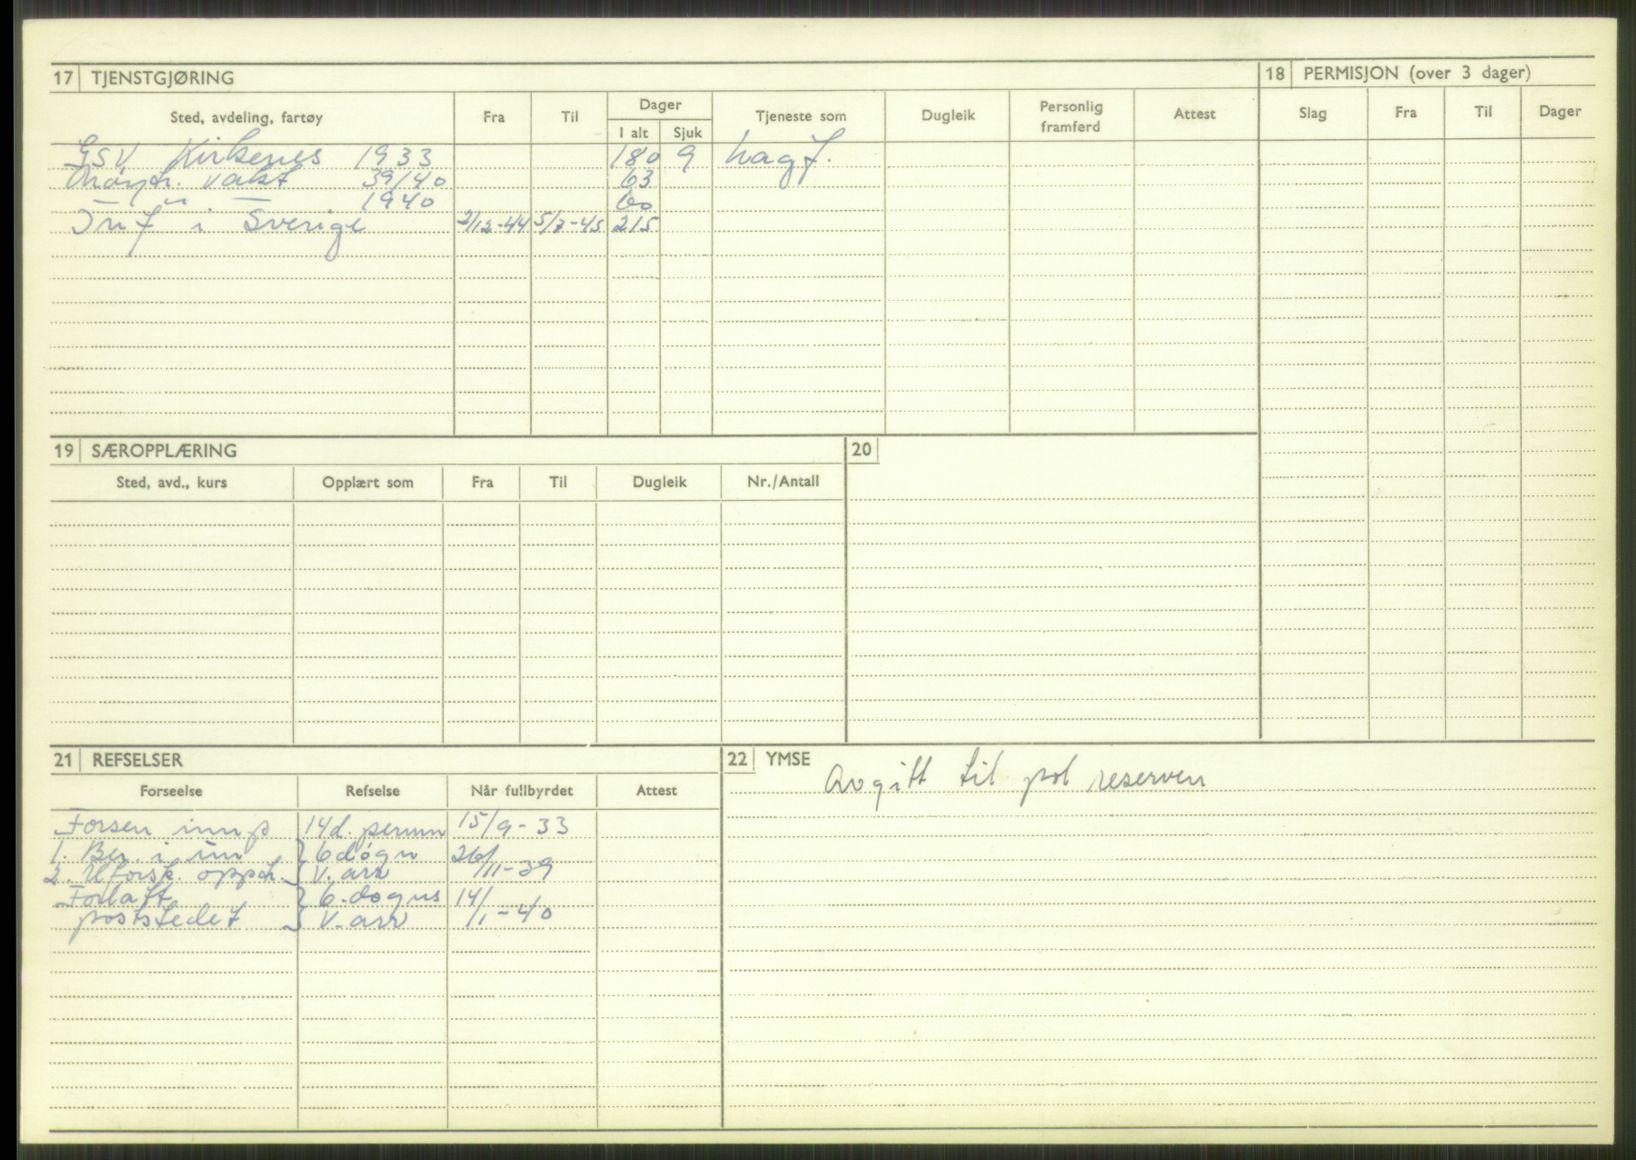 17 TJENSTGJØRING
Sted, avdeling, fartøy Fra Til Dager Tjeneste som Dugleik Personlig framferd Attest
I alt Sjuk
GSV Kirkenes 1933 180 9 vagf.
Nøytr. vakt 39/40 63
" — 1940 60
Inf i Sverige 2/12-44 5/7-45 215
18 PERMISJON (over 3 dager)
Slag Fra Til Dager
19 SÆROPPLÆRING
Sted, avd., kurs Opplært som Fra Til Dugleik Nr./Antall
20
21 REFSELSER
Forseelse Refselse Når fullbyrdet Attest
Forsen innp 14d. permn 15/9-33
1. Ber. i un } 6 døgn 26/
2. Uforsk. oppd. v. arr /11-39
Forlatt } 6. døgns 14/
poststedet v. arr /1-40
22 YMSE
Avgitt til pol reserven